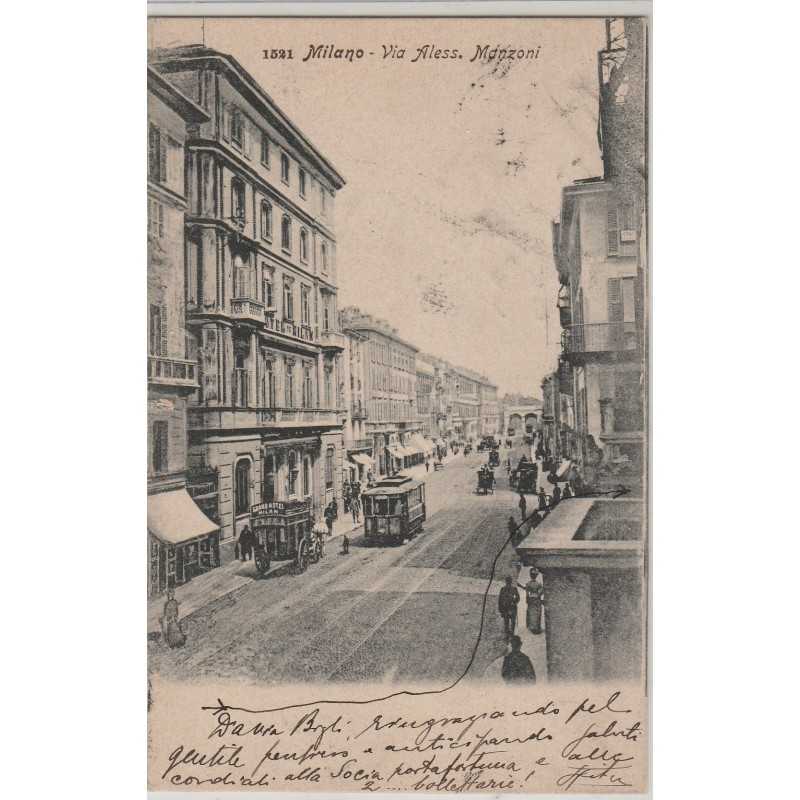 1521 Milano - Via Aless. Manzoni
HOTEL MILAN
GRAND HOTEL
MILAN
pel
gentile pensiero e anticipando saluti
cordiali alla Socia portafortuna e alle
2.... bollettarie!